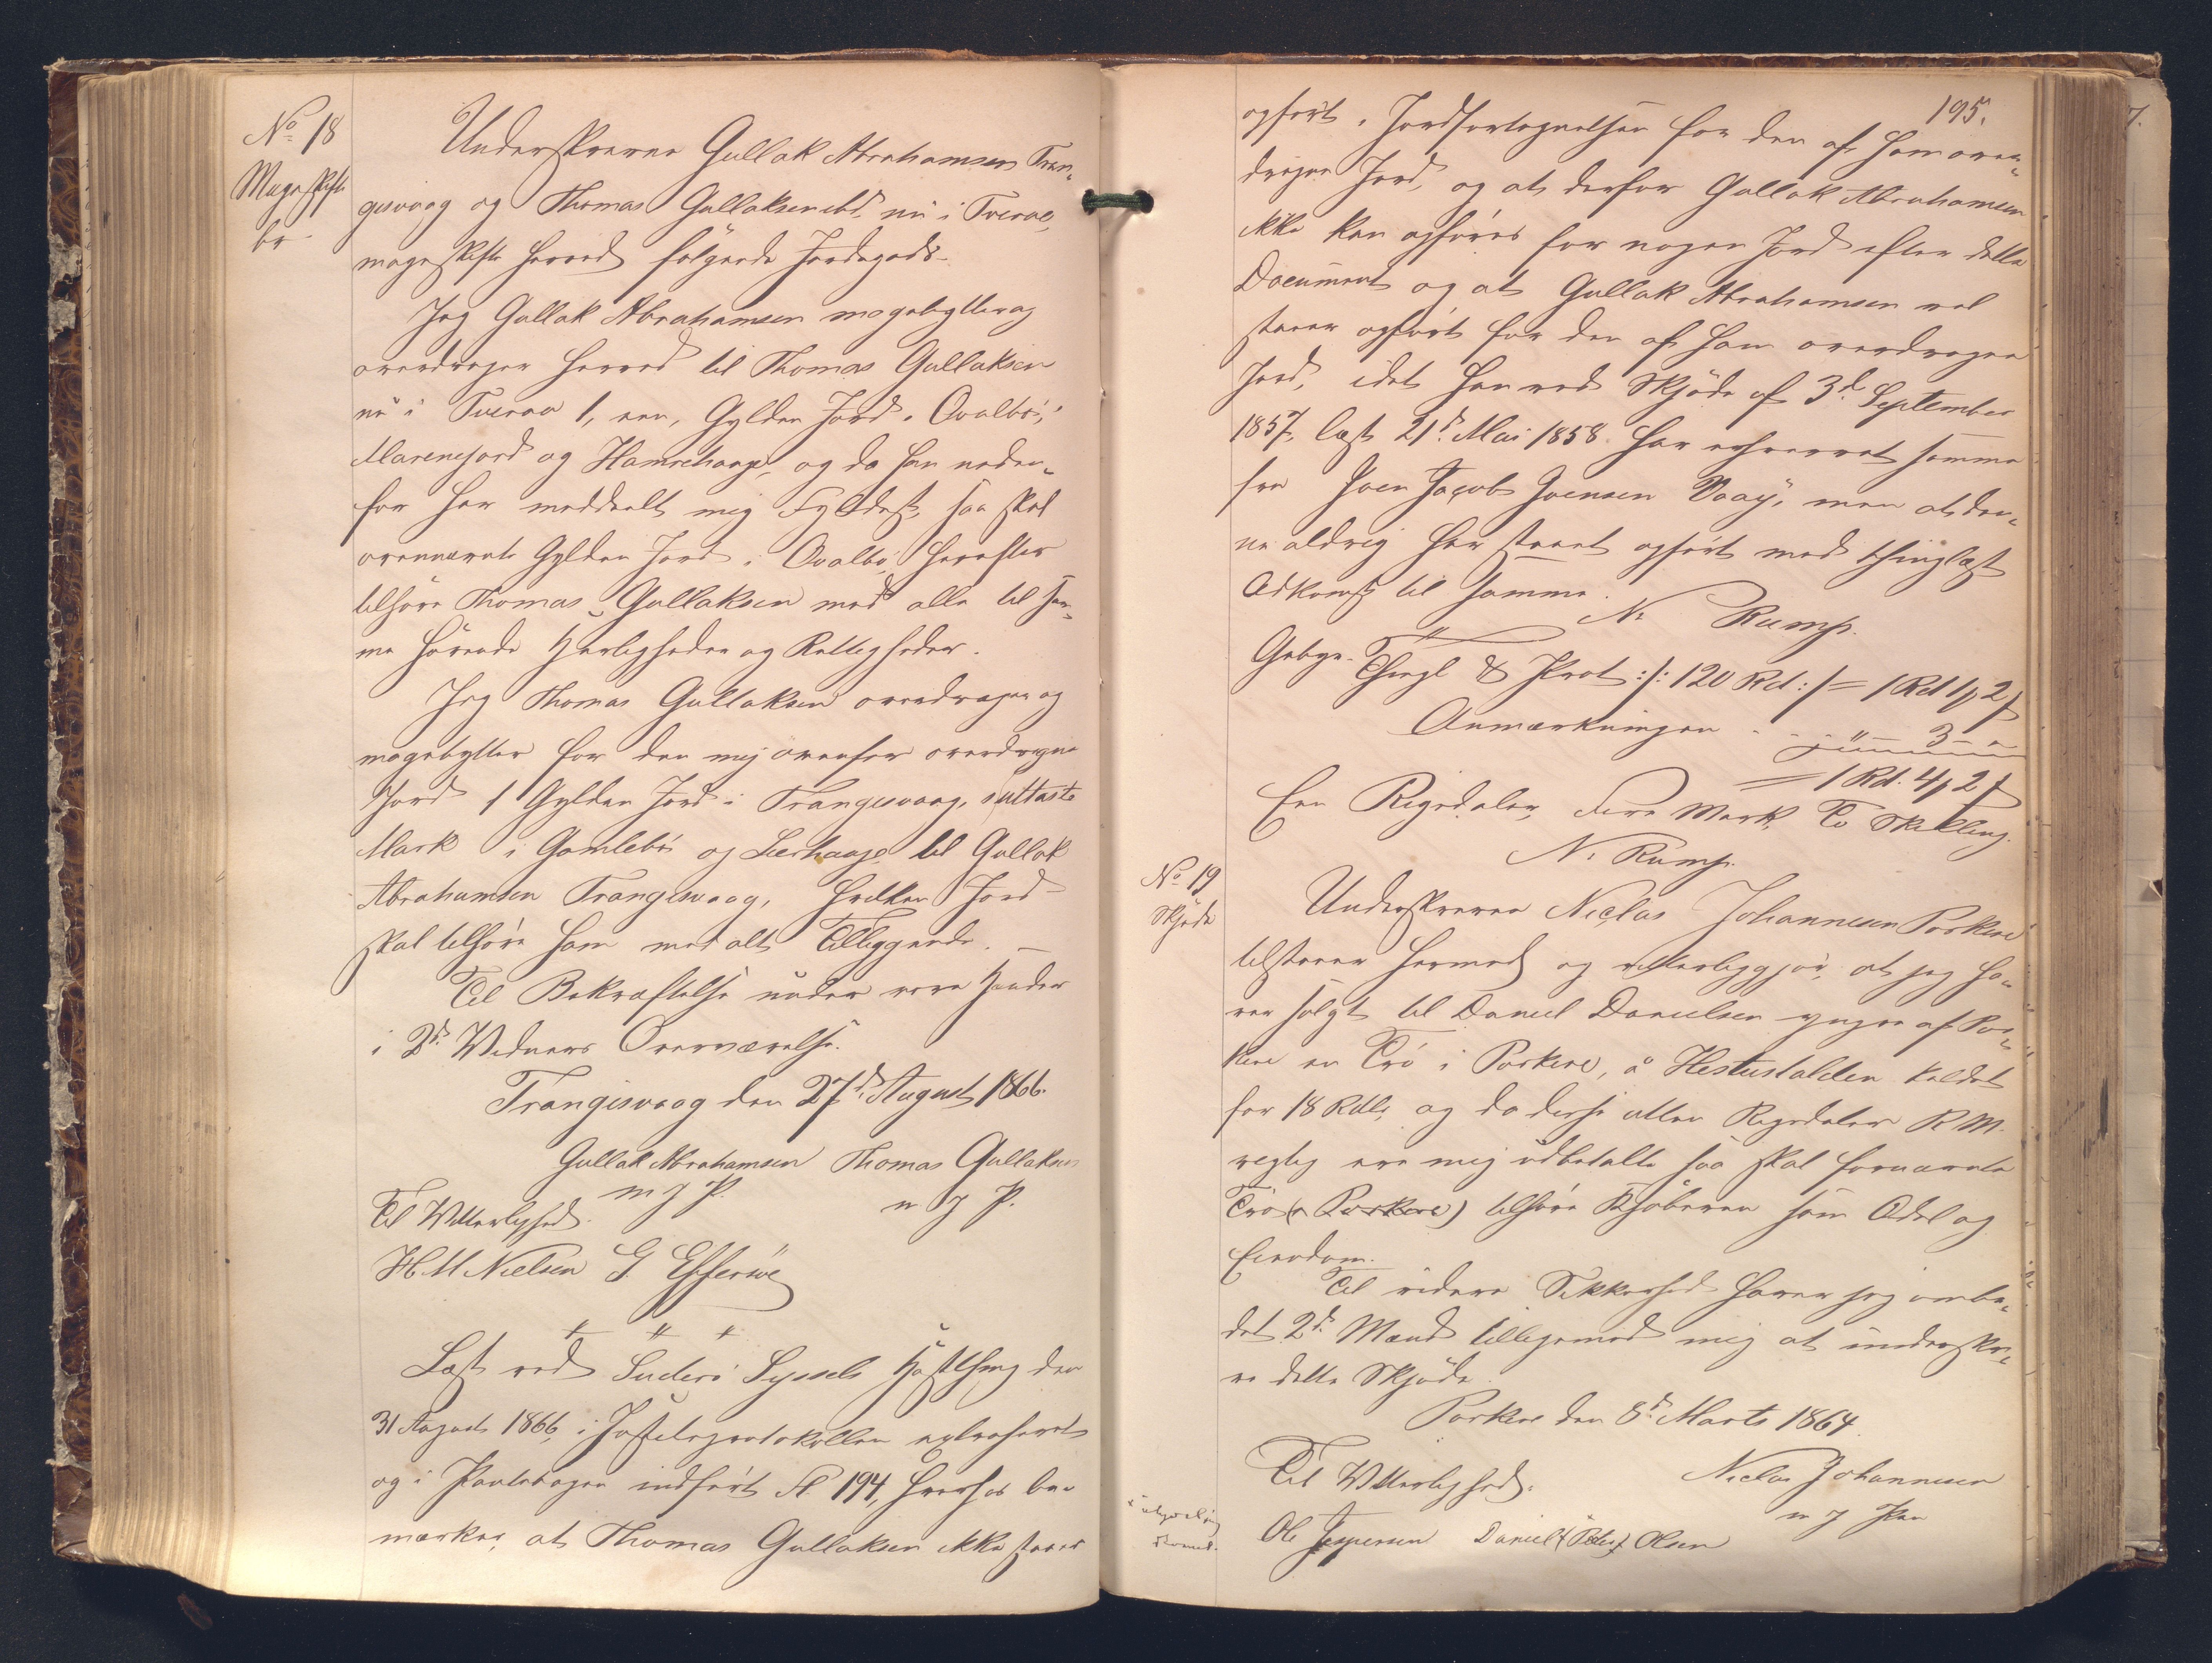 No 18
Mageskifte
br
Underskrevne Gullak Abrahamsen Tran-
gesvaag og Thomas Gullaksen ibd. nú i Tveraa,
mageskifte herved følgende Jordegods.
Jeg Gullak Abrahamsen magebytter og
overdrager herved til Thomas Gullaksen
nú i Tveraa 1, een, Gylden Jord i Ovalbó,
Marenejord og Hamrehauge, og da han neden-
for har meddeelt mig Fyldest, saa skal
ovennævnte Gylden Jord i Ovalbó herefter
tilhøre Thomas Gullaksen med alle til sam-
me hørende Herligheder og Rettigheder.
Jeg Thomas Gullaksen overdrager og
magebytter for den mig ovenfor overdragne
Jord 1 Gylden Jord i Trangesvaag, sjette
Mark i Gamlebó og Leerhauge til Gullak
Abrahamsen Trangesvaag, hvilken Jord
skal tilhøre ham med alt Tilliggende.
Til Bekræftelse under vore Hænder
i 2de Vidners Overværelse.
Trangisvaag den 27de August 1866.
Gullak Abrahamsen Thomas Gullaksen
m. f. P. m. f. P.
Til Vitterlighed.
H. M Nielsen G. Effersøe
Læst ved Suderó Syssels Høstthing den
31 August 1866, i Justitsprotokollen extraheret
og i Pantebogen indført Fl. 194, hvorhos be-
mærkes, at Thomas Gullaksen ikke staaer
195.
opført i Jordfortegnelsen for den af ham over-
dragne Jord, og at derfor Gullak Abrahamsen
ikke kan opføres for nogen Jord efter dette
Document og at Gullak Abrahamsen vel
staaer opført for den af ham overdragne
Jord, idet han ved Skjøde af 3de September
1857, læst 21de Mai 1858 har erhvervet samme
fra Joen Jacob Joensen Vaag, men at den-
ne aldrig har staaet opført med thinglæst
Adkomst til samme.
N. Rump.
Gebyr. Thingl & Prot :/: 120 Rd :/ = 1 Rd 1 ₥ 2 ß
Anmærkningen - - " 3 - "
= 1 Rd. 4 ₥ 2 ß
Een Rigsdaler, Fire Mark, To Skilling.
N. Rump.
No 19
Skjøde
Underskrevne Niclas Johannesen Porkere
tilstaaer hermed og vitterliggjør, at jeg ha-
ver solgt til Daniel Danielsen yngre af Por-
kere en Tró i Porkere, á Hestustalden kaldet
for 18 Rdlr og da disse atten Rigsdaler R. M.
rigtig ere mig udbetalte saa skal fornævnte
Tró (i Porkere) tilhøre Kjøberen som Odel og
Eiendom.
Til videre Sikkerhed haver jeg ombe-
det 2de Mænd tilligemed mig at underskri-
ve dette Skjøde.
Porkere den 8de Marts 1864.
Til Vitterlighed. Niclas Johannesen
m f Pen
Ole Jespersen Daniel (Peter) Olsen